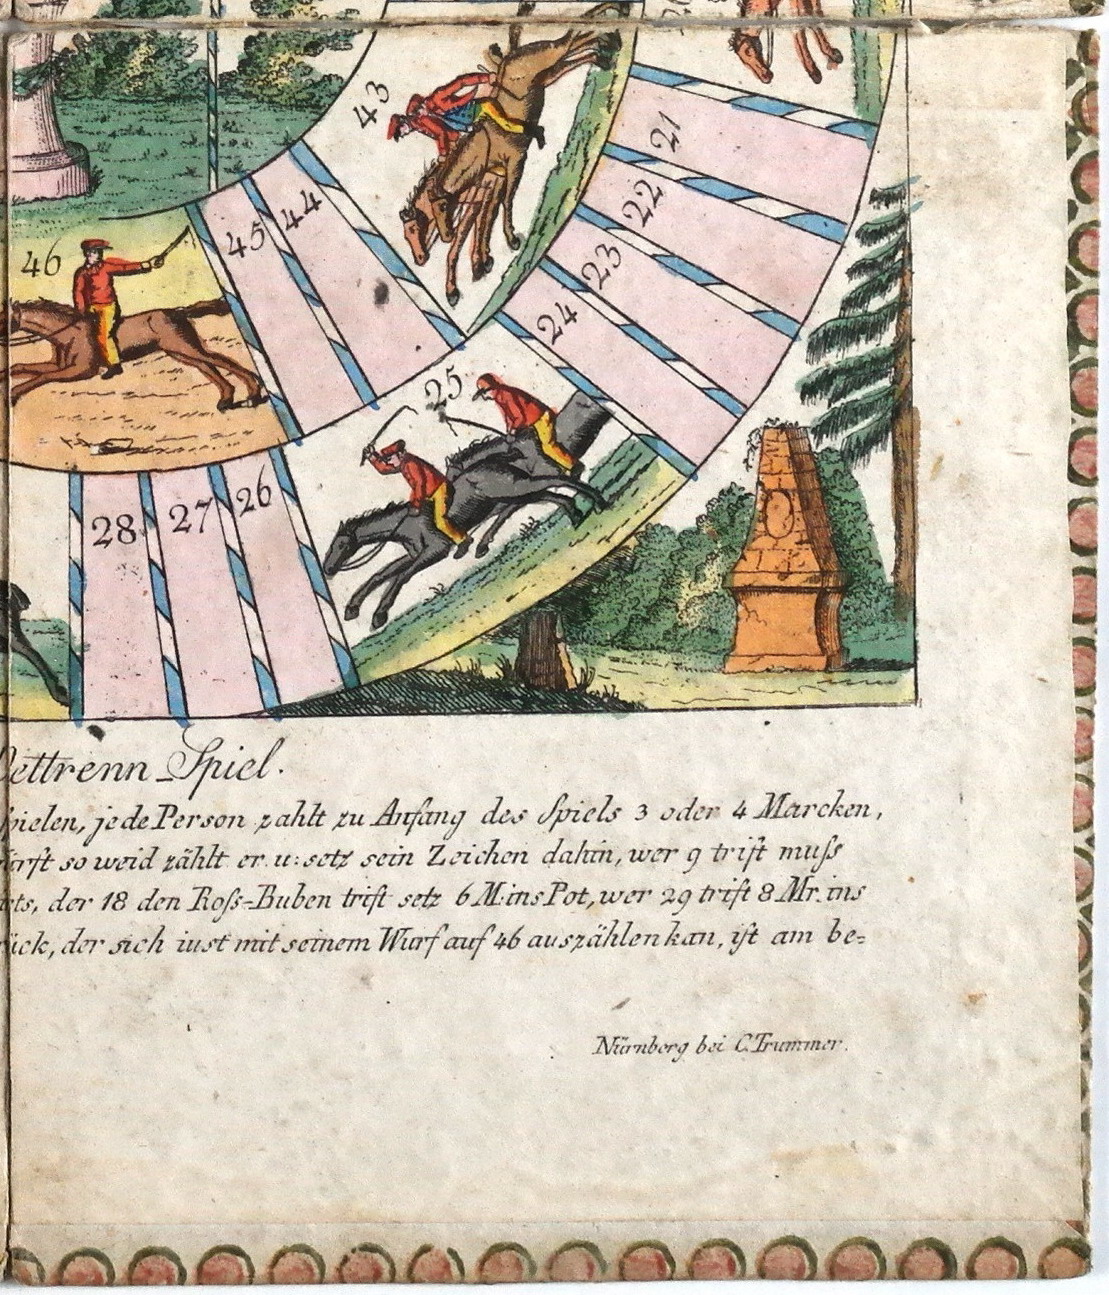 43
21
22
23
24
44
45
46
25
26
27
28
Wettrenn Spiel.
spielen, jede Person zahlt zu Anfang des Spiels 3 oder 4 Marcken,
würft so weid zählt er u: setz sein Zeichen dahin, wer 9 trift muſs
der 18 den Roſs-Buben trift setz 6 M: ins Pot, wer 29 trift 8 Mr. ins
der sich iust mit seinem Wurf auf 46 auszählen kan, iſt am be=
Nürnberg bei C. Trummer.